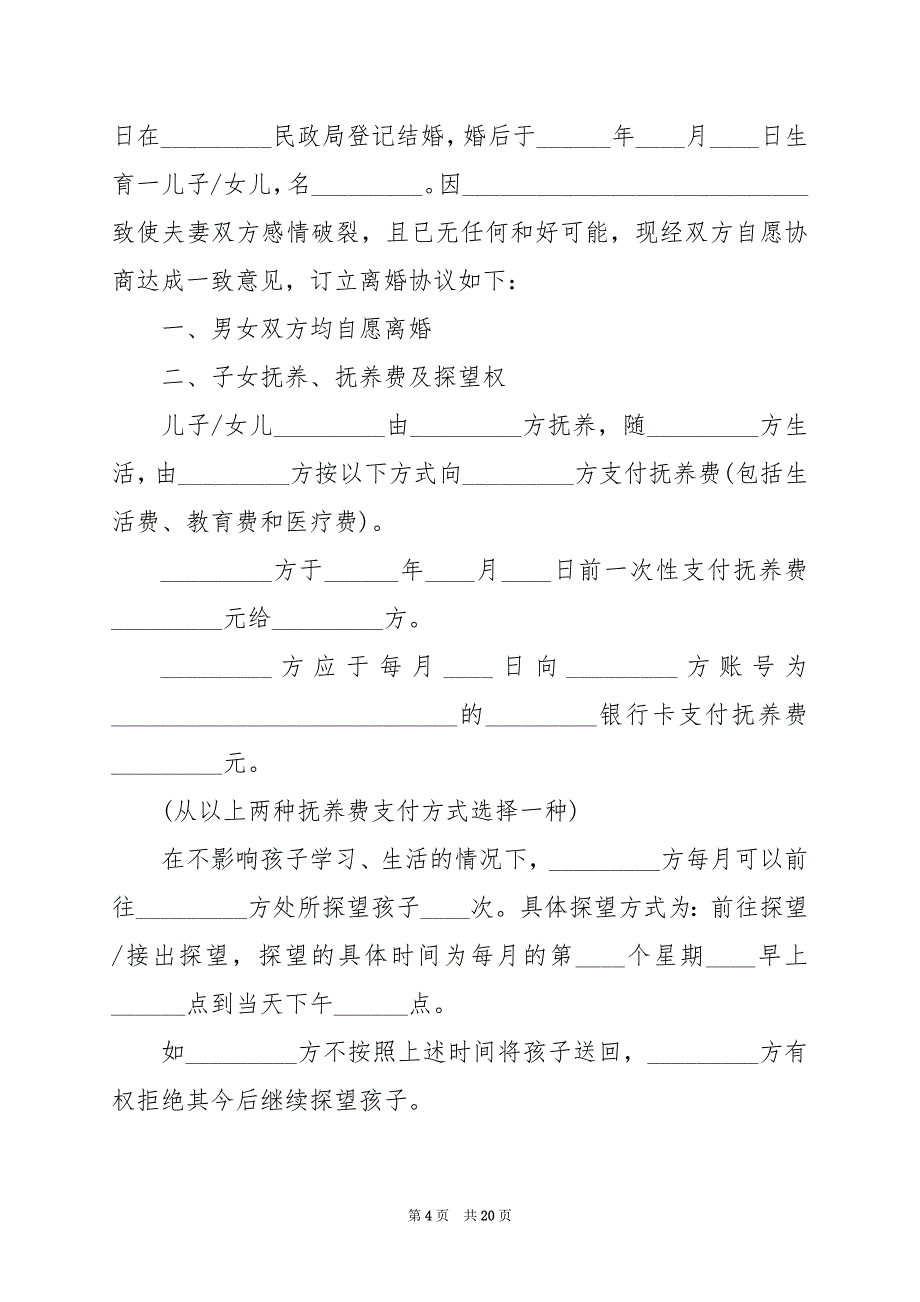 日在_________民政局登记结婚，婚后于______年____月____日生
育一儿子/女儿，名_________。因____________________________
致使夫妻双方感情破裂，且已无任何和好可能，现经双方自愿协
商达成一致意见，订立离婚协议如下：
一、男女双方均自愿离婚
二、子女抚养、抚养费及探望权
儿子/女儿_________由_________方抚养，随_________方生
活，由_________方按以下方式向_________方支付抚养费(包括生
活费、教育费和医疗费)。
_________方于______年____月____日前一次性支付抚养费
_________元给_________方。
_________方应于每月____日向_________方账号为
____________________________的_________银行卡支付抚养费
_________元。
(从以上两种抚养费支付方式选择一种)
在不影响孩子学习、生活的情况下，_________方每月可以前
往_________方处所探望孩子____次。具体探望方式为：前往探望
/接出探望，探望的具体时间为每月的第____个星期____早上
______点到当天下午______点。
如_________方不按照上述时间将孩子送回，_________方有
权拒绝其今后继续探望孩子。
第 4 页 共 20 页